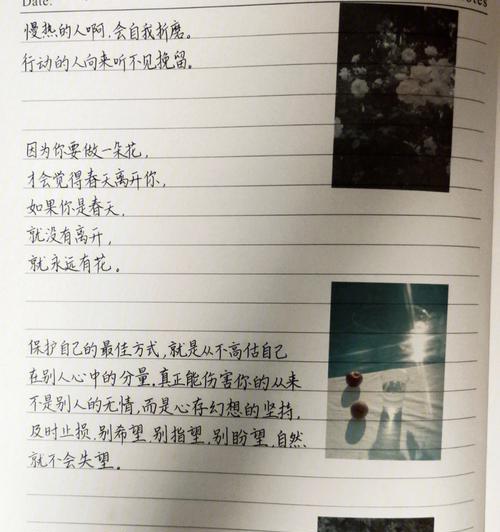 Date:
otes
慢热的人啊,会自我折磨。
行动的人向来听不见挽留。
因为你要做一朵花,
才会觉得春天离开你,
如果你是春天,
就没有离开,
就永远有花。
保护自己的最佳方式,就是从不高估自己
在别人心中的分量,真正能伤害你的从来
不是别人的无情,而是心存幻想的坚持,
及时止损,别希望,别指望,别盼望,自然
就不会失望。